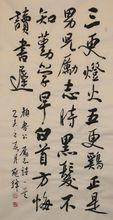 三更燈火五更鷄正是
男兒勵志時黑髮不
知勤學早白首方悔
讀書遲
顏魯公勵志詩一首